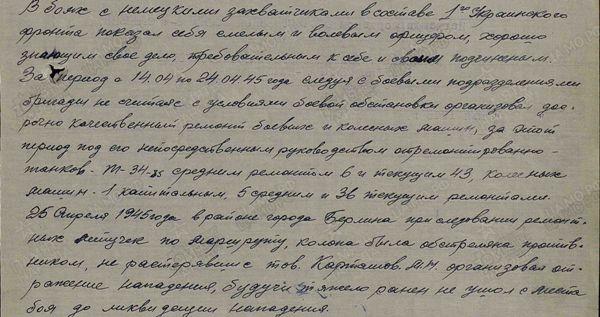 В боях с немецкими захватчиками в составе 1го Украинского
фронта показал себя смелым и волевым офицером, хорошо
знающим свое дело, требовательным к себе и своим подчиненым.
За период с 14.04 по 24.04.45 года следуя с боевыми подразделениями
бригады не считаясь с условиями боевой обстановки организовал дос-
рочно качественный ремонт боевых и колесных машин, за этот
период под его непосредственным руководством отремонтированно-
танков - Т-34-85 средним ремонтом 6 и текущим 43, колесных
машин - 1 капитальным, 5 средним и 36 текущим ремонтами.
25 Апреля 1945 года в районе города Берлина при следовании ремонт-
ных летучек по маршруту, колона была обстреляна против-
ником, не растерявшись тов. Карташов. М.Н. организовал от-
ражение нападения, будучи тяжело ранен не ушол с места
боя до ликвидации нападения.